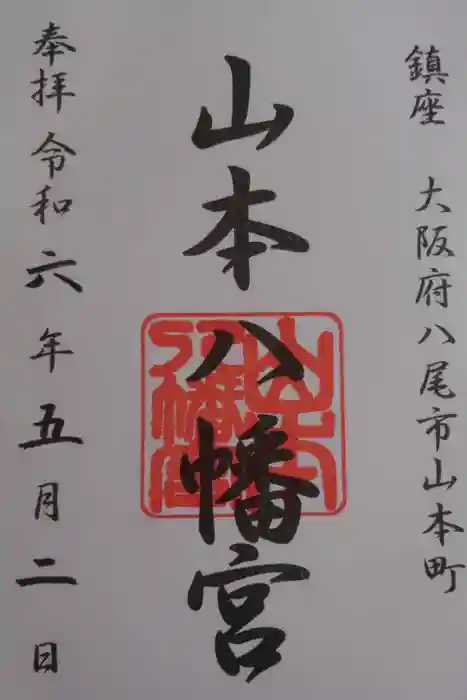 鎮座 大阪府八尾市山本町
山本八幡宮
奉拝 令和六年五月二日
山本八幡宮